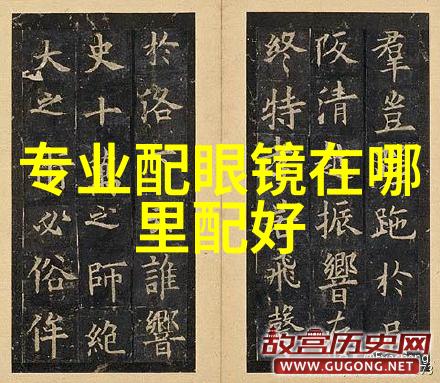 羣豈跎於
阪清振響
终特飛聲
於洛誰響
史十之師絶
大之必俗侔
专业配眼镜在哪
里配好
故宫历史网
WWW.GUGONG.NET
73